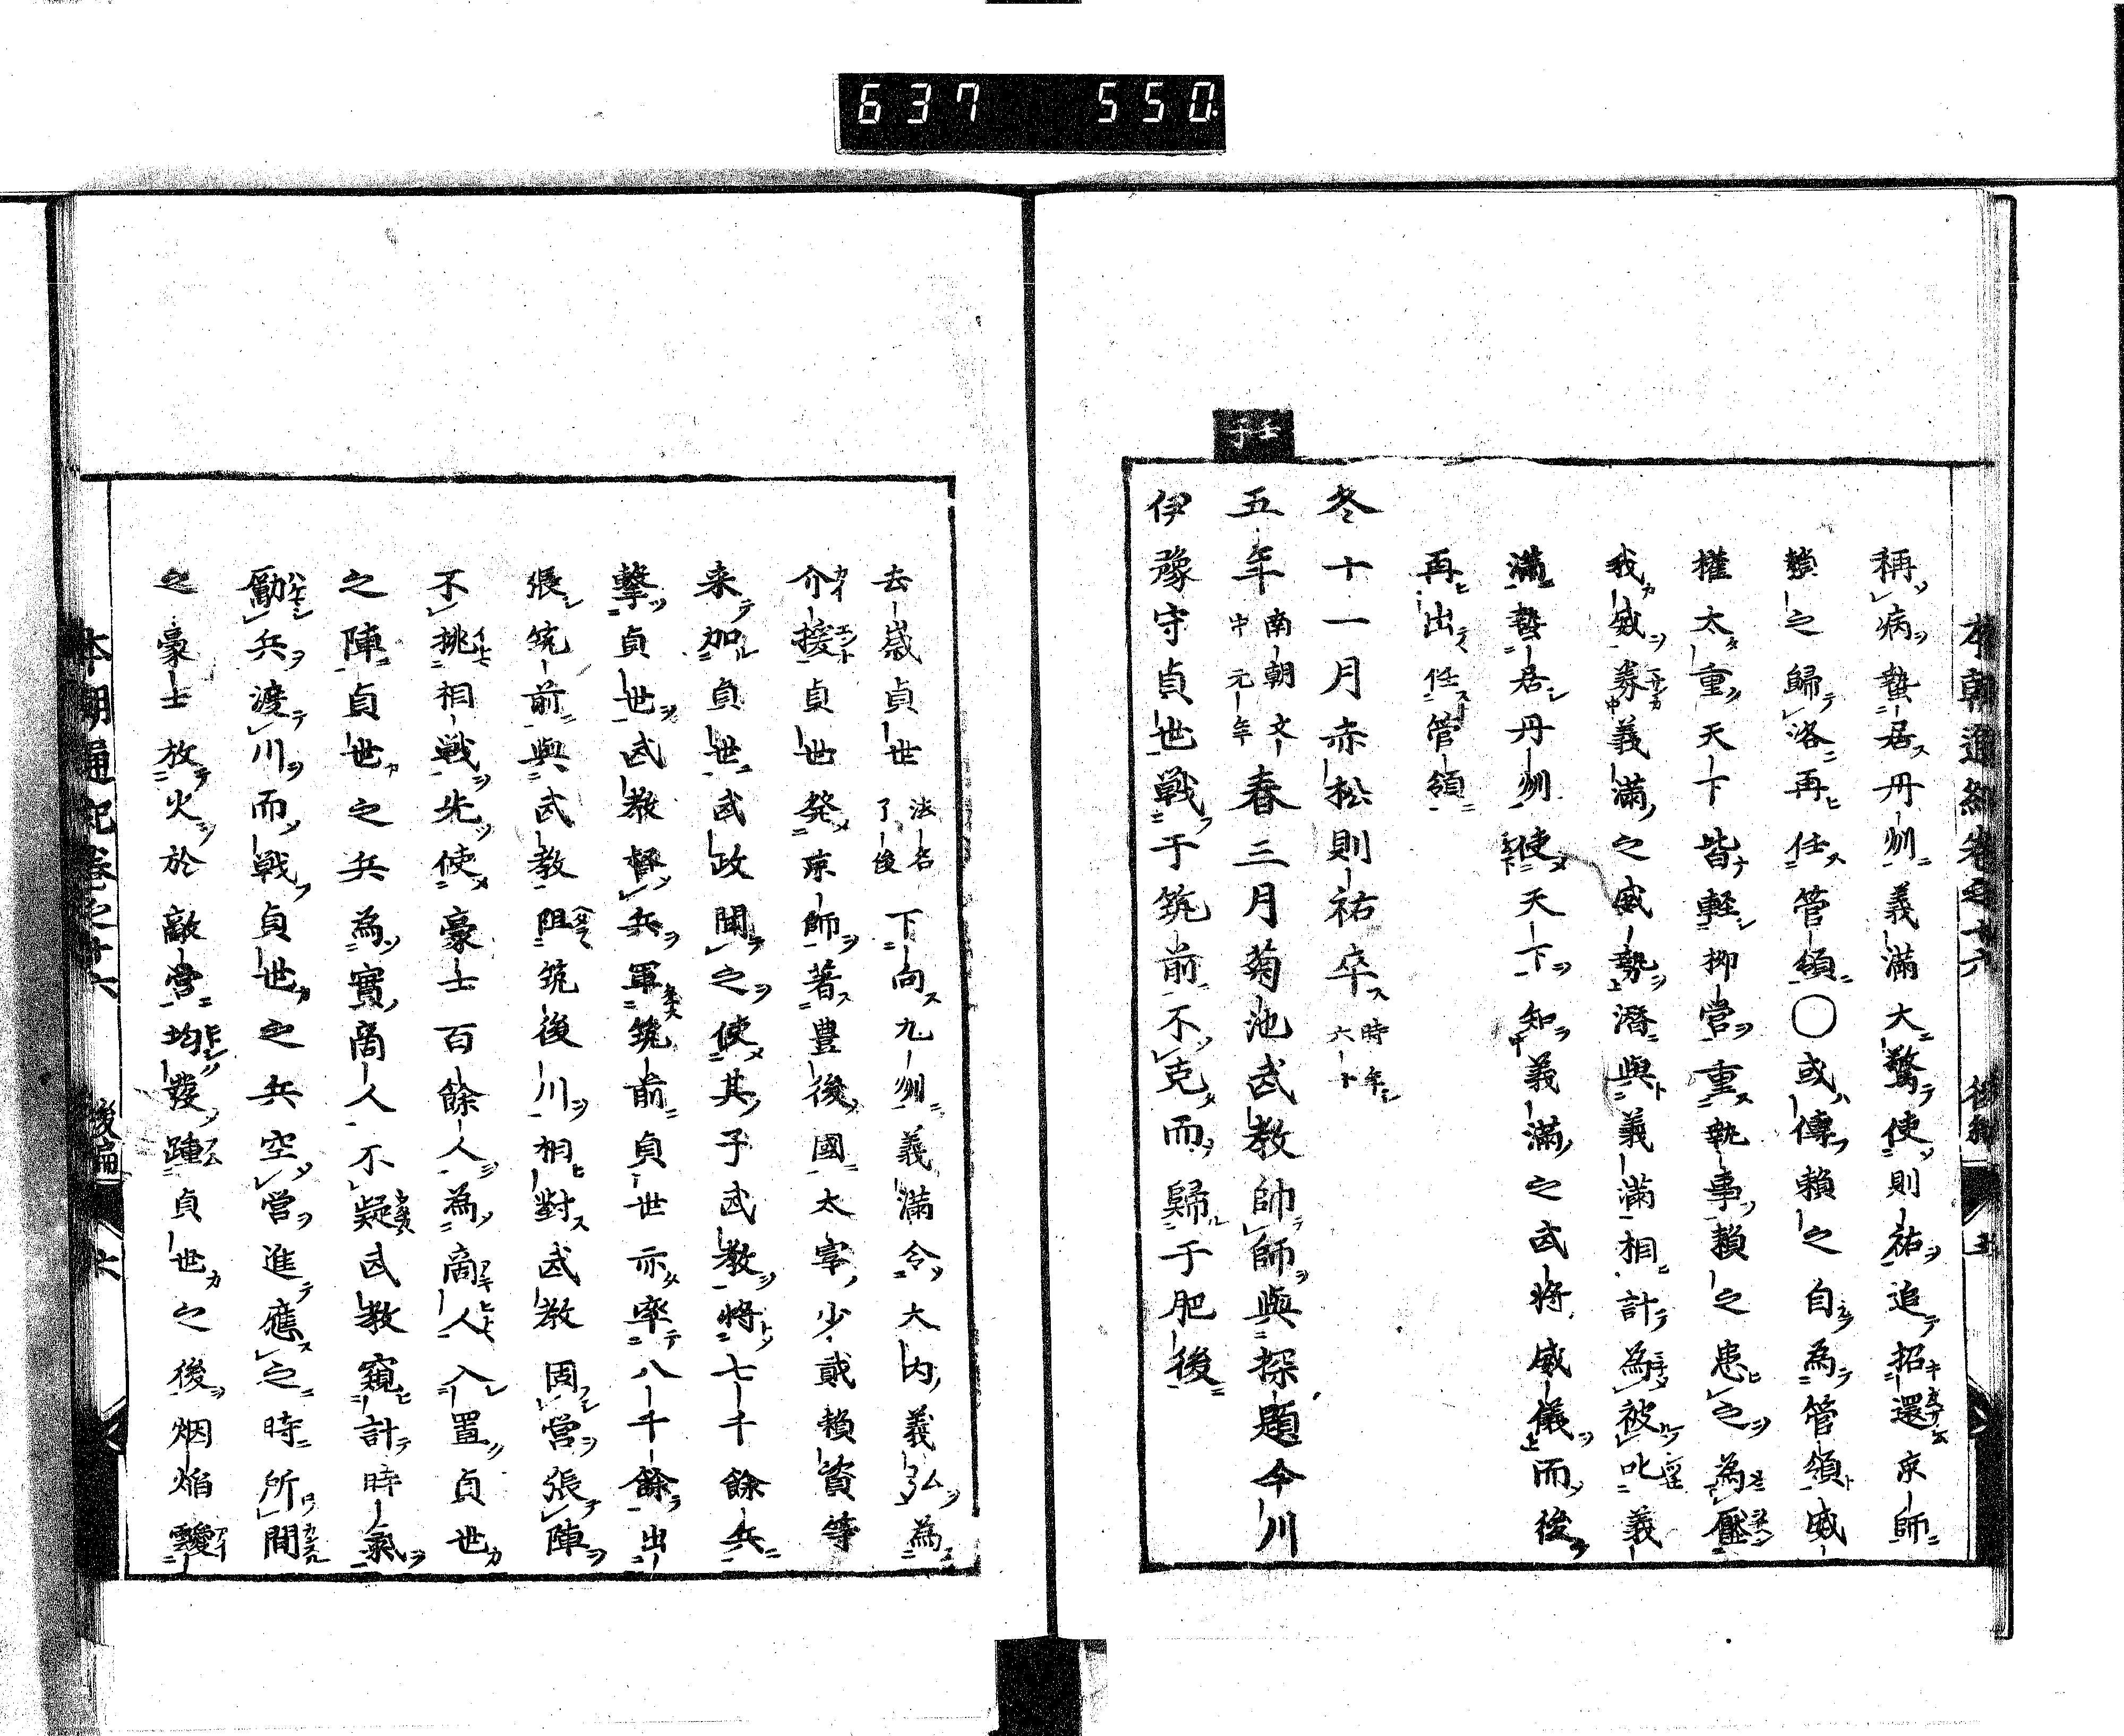 637 550
本朝通紀卷之十六 後編 五
稱病蟄居丹州義滿大驚使則祐追招還京師
頼之歸洛再任管領〇或傳賴之自為管領威
權太重天下皆輕柳營重執事賴之患之為壓
我威募義滿之威勢潛與義滿相計為被叱義
滿蟄居丹州使天下知義滿之武將威儀而後
再出任管領
冬十一月赤松則祐卒時年六十
壬子
五年南朝文中元年春三月菊池武教帥師與探題今川
伊豫守貞世戰于筑前不克而歸于肥後
去歲貞世法名了俊下向九州義滿令大内義弘為
介援貞世發京師著豊後國太宰少貳頼資等
来加貞世武政聞之使其子武教將七千餘兵
擊貞世武教督兵軍筑前貞世亦率八千餘出
張筑前與武教阻筑後川相對武教固營張陣
不挑相戰先使豪士百餘人為商人入置貞世
之陣貞世之兵為實商人不疑武教窺計時氣
勵兵渡川而戰貞世之兵空營進應之時所間
之豪士放火於敵營均發踵貞世之後烟焔靉
本朝通紀卷之十六 後編 六